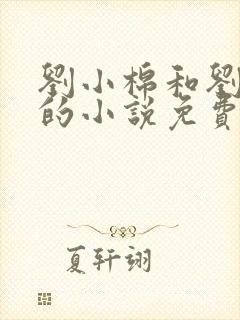 劉小棉和劉
的小說免費
夏轩翊